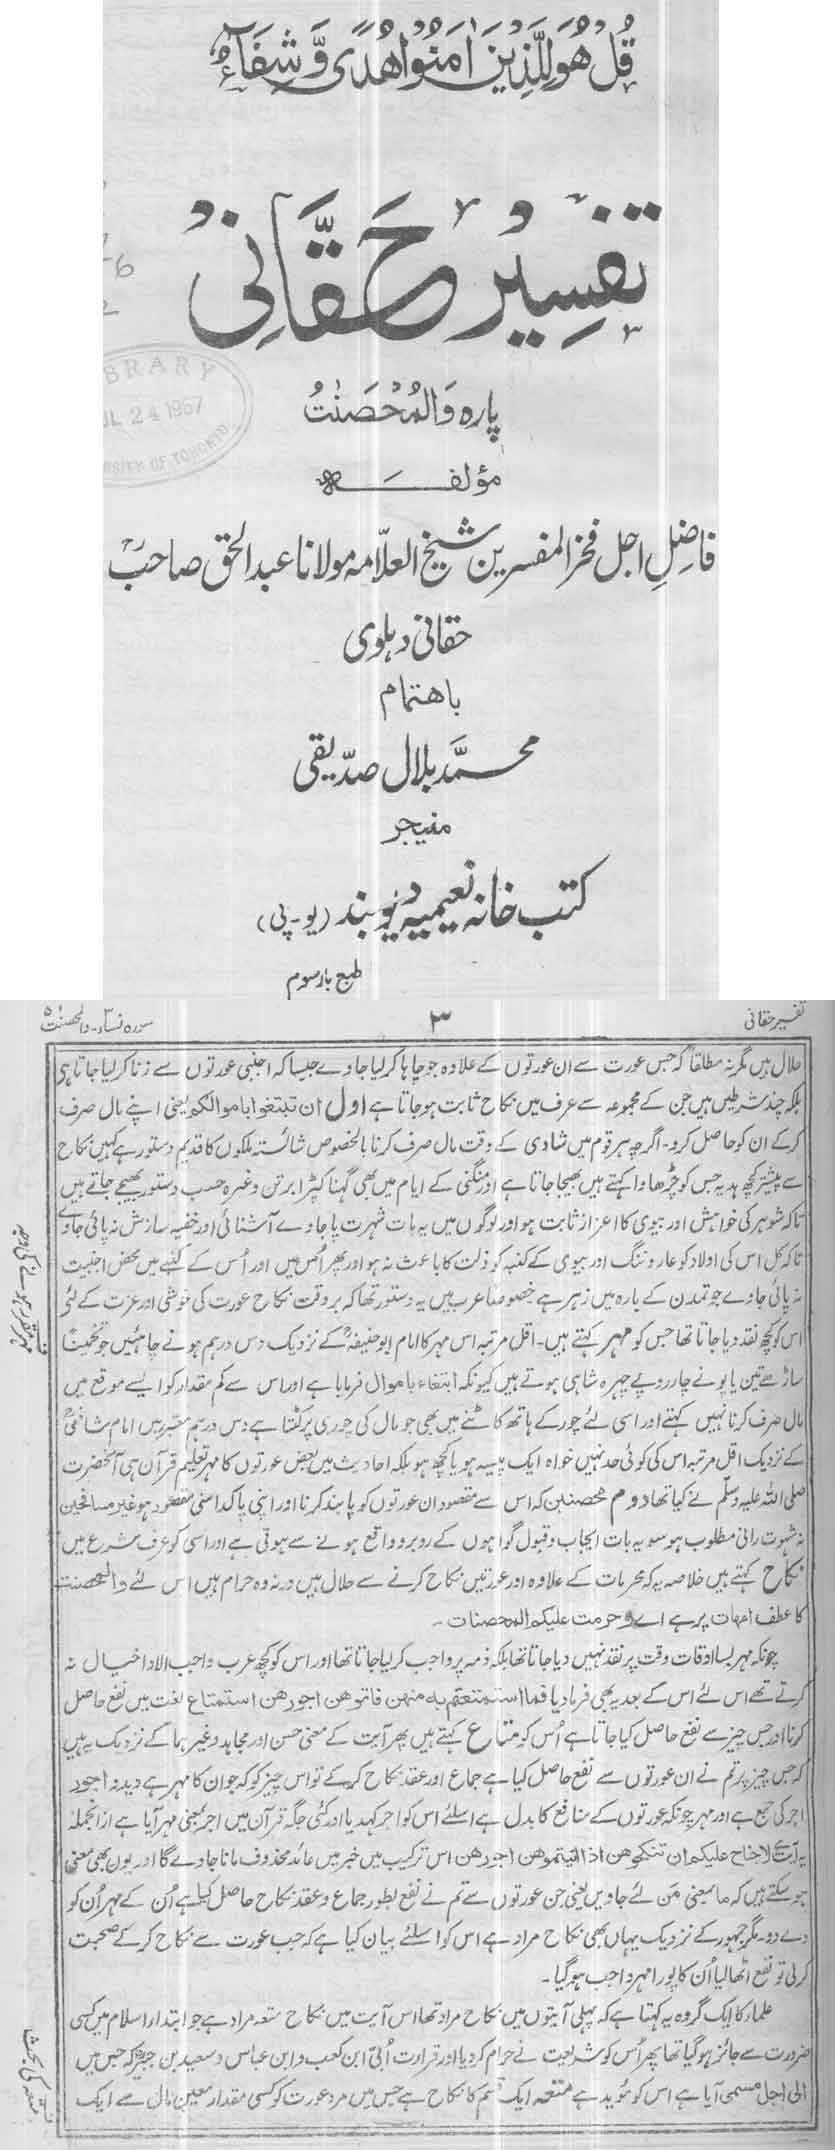 قُلْ هُوَ لِلَّذِينَ اٰمَنُوا هُدًى وَّ شِفَآءٌ
تفسیر حقانی
پارہ وَالمُحْصَنٰتُ
مؤلفہ
فاضلِ اجل فخر المفسرین شیخ العلّامہ مولانا عبد الحق صاحبؒ
حقانی دہلوی
باہتمام
محمد بلال صدیقی
منیجر
کتب خانہ نعیمیہ دیوبند (یو۔پی)
طبع بار سوم
LIBRARY
JUL 24 1967
UNIVERSITY OF TORONTO
تفسیر حقانی
۳
سورہ نساء۔ والمحصنت ۵
حلال ہیں مگر نہ مطلقاً کہ جس عورت سے ان عورتوں کے علاوہ جو چاہا کر لیا جاوے جیسا کہ اجنبی عورتوں سے زنا کر لیا جاتا ہی
بلکہ چند شرطیں ہیں جن کے مجموعہ سے عرف میں نکاح ثابت ہو جاتا ہے اول ان تبتغوا باموالکم یعنی اپنے مال صرف
کرکے ان کو حاصل کرو۔ اگرچہ ہر قوم میں شادی کے وقت مال صرف کرنا بالخصوص شائستہ ملکوں کا قدیم دستور ہے کہیں نکاح
سے پیشتر کچھ ہدیہ جس کو چڑھاوا کہتے ہیں بھیجا جاتا ہے اور منگنی کے ایام میں بھی گہنا کپڑا برتن وغیرہ حسب دستور بھیجے جاتے ہیں
تاکہ شوہر کی خواہش اور بیوی کا اعزاز ثابت ہو اور لوگوں میں یہ بات شہرت پا جاوے آشنائی اور خفیہ سازش نہ پائی جاوے
تاکہ کل اس کی اولاد کو عار و ننگ اور بیوی کے کنبہ کو ذلت کا باعث نہ ہو اور پھر اُس میں اور اُس کے کنبے میں محض اجنبیت
نہ پائی جاوے جو تمدن کے بارہ میں زہر ہے خصوصاً عرب میں یہ دستور تھا کہ بروقت نکاح عورت کی خوشی اور عزت کے لئے
اس کو کچھ نقد دیا جاتا تھا جس کو مہر کہتے ہیں۔ اقل مرتبہ اس مہر کا امام ابو حنیفہؒ کے نزدیک دس درہم ہونے چاہئیں جو تخمیناً
ساڑھے تین یا پونے چار روپے چہرہ شاہی ہوتے ہیں کیونکہ ابتغاء باموال فرمایا ہے اور اس سے کم مقدار کو ایسے موقع میں
مال صرف کرنا نہیں کہتے اور اسی لئے چور کے ہاتھ کاٹنے میں بھی جو مال کی چوری پر کٹتا ہے دس درہم معتبر ہیں امام شافعیؒ
کے نزدیک اقل مرتبہ اس کی کوئی حد نہیں خواہ ایک پیسہ ہو یا کچھ ہو بلکہ احادیث میں بعض عورتوں کا مہر تعلیم قرآن ہی آنحضرت
صلی اللہ علیہ وسلم نے کیا تھا دوم محصنین کہ اس سے مقصود ان عورتوں کو پابند کرنا اور اپنی پاکدامنی مقصود ہو غیر مسافحین
نہ شہوت رانی مطلوب ہو سو یہ بات ایجاب و قبول گواہوں کے روبرو واقع ہونے سے ہوتی ہے اور اسی کو عرف شرع میں
نکاح کہتے ہیں خلاصہ یہ کہ محرمات کے علاوہ اور عورتیں نکاح کرنے سے حلال ہیں ورنہ وہ حرام ہیں اس لئے والمحصنت
کا عطف امہات پر ہے اے و حرمت علیکم المحصنات۔
چونکہ مہر بسا اوقات وقت پر نقد نہیں دیا جاتا تھا بلکہ ذمہ پر واجب کر لیا جاتا تھا اور اس کو کچھ عرب واجب الادا خیال نہ
کرتے تھے اس لئے اس کے بعد یہ بھی فرما دیا فما استمتعتم بہ منہن فاتوہن اجورہن استمتاع لغت میں نفع حاصل
کرنا اور جس چیز سے نفع حاصل کیا جاتا ہے اُس کو متاع کہتے ہیں پھر آیت کے معنی حسن اور مجاہد وغیرہما کے نزدیک یہ ہیں
کہ جس چیز پر تم نے ان عورتوں سے نفع حاصل کیا ہے جماع اور عقد نکاح کرکے تو اس چیز کو کہ جو ان کا مہر ہے دیدو اجور
اجر کی جمع ہے اور مہر چونکہ عورتوں کے منافع کا بدل ہے اسلئے اس کو اجر کہدیا اور کئی جگہ قرآن میں اجر بمعنی مہر آیا ہے از انجملہ
یہ آیت لاجناح علیکم ان تنکحوہن اذا اتیتموہن اجورہن اس ترکیب میں خبر میں عائد محذوف مانا جاوے گا اور یوں بھی معنی
ہو سکتے ہیں کہ ما بمعنی مَن لئے جاویں یعنی جن عورتوں سے تم نے نفع بطور جماع و عقد نکاح حاصل کیا ہے اُن کے مہر اُن کو
دے دو۔ مگر جمہور کے نزدیک یہاں بھی نکاح مراد ہے اس کو اسلئے بیان کیا ہے کہ جب عورت سے نکاح کرکے صحبت
کرلی تو نفع اٹھا لیا اُن کا پورا مہر واجب ہو گیا۔
علماء کا ایک گروہ یہ کہتا ہے کہ پہلی آیتوں میں نکاح مراد تھا اس آیت میں نکاح متعہ مراد ہے جو ابتداء اسلام میں کسی
ضرورت سے جائز ہو گیا تھا پھر اُس کو شریعت نے حرام کر دیا اور قراءت اُبیّ ابن کعب و ابن عباس و سعید بن جبیرؓ کہ جس میں
الی اجل مسمی آیا ہے اس کو مؤید ہے متعہ ایک قسم کا نکاح ہے جس میں مرد عورت کو کسی مقدار معین مال سے ایک
مہر مقرر ہونے کی وجہ
متعہ کی بحث